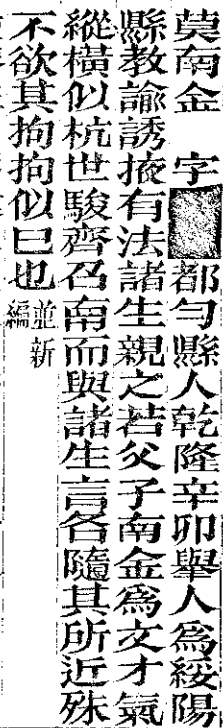 莫南金 字 都勻縣人乾隆辛卯舉人爲綏陽
縣教諭誘掖有法諸生親之若父子南金爲文才氣
縱橫似杭世駿齊召南而與諸生言各隨其所近殊
不欲其拘拘似巳也並新
編